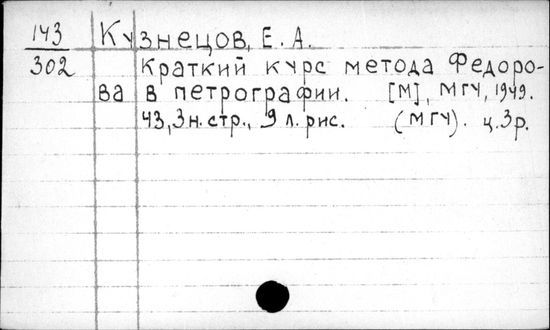 143 Кузнецов, Е. А.
302 Краткий курс метода Федоро-
ва в петрографии. [М], МГУ, 1949.
43, 3 н. стр., 9 л. рис. (МГУ). ц. 3 р.